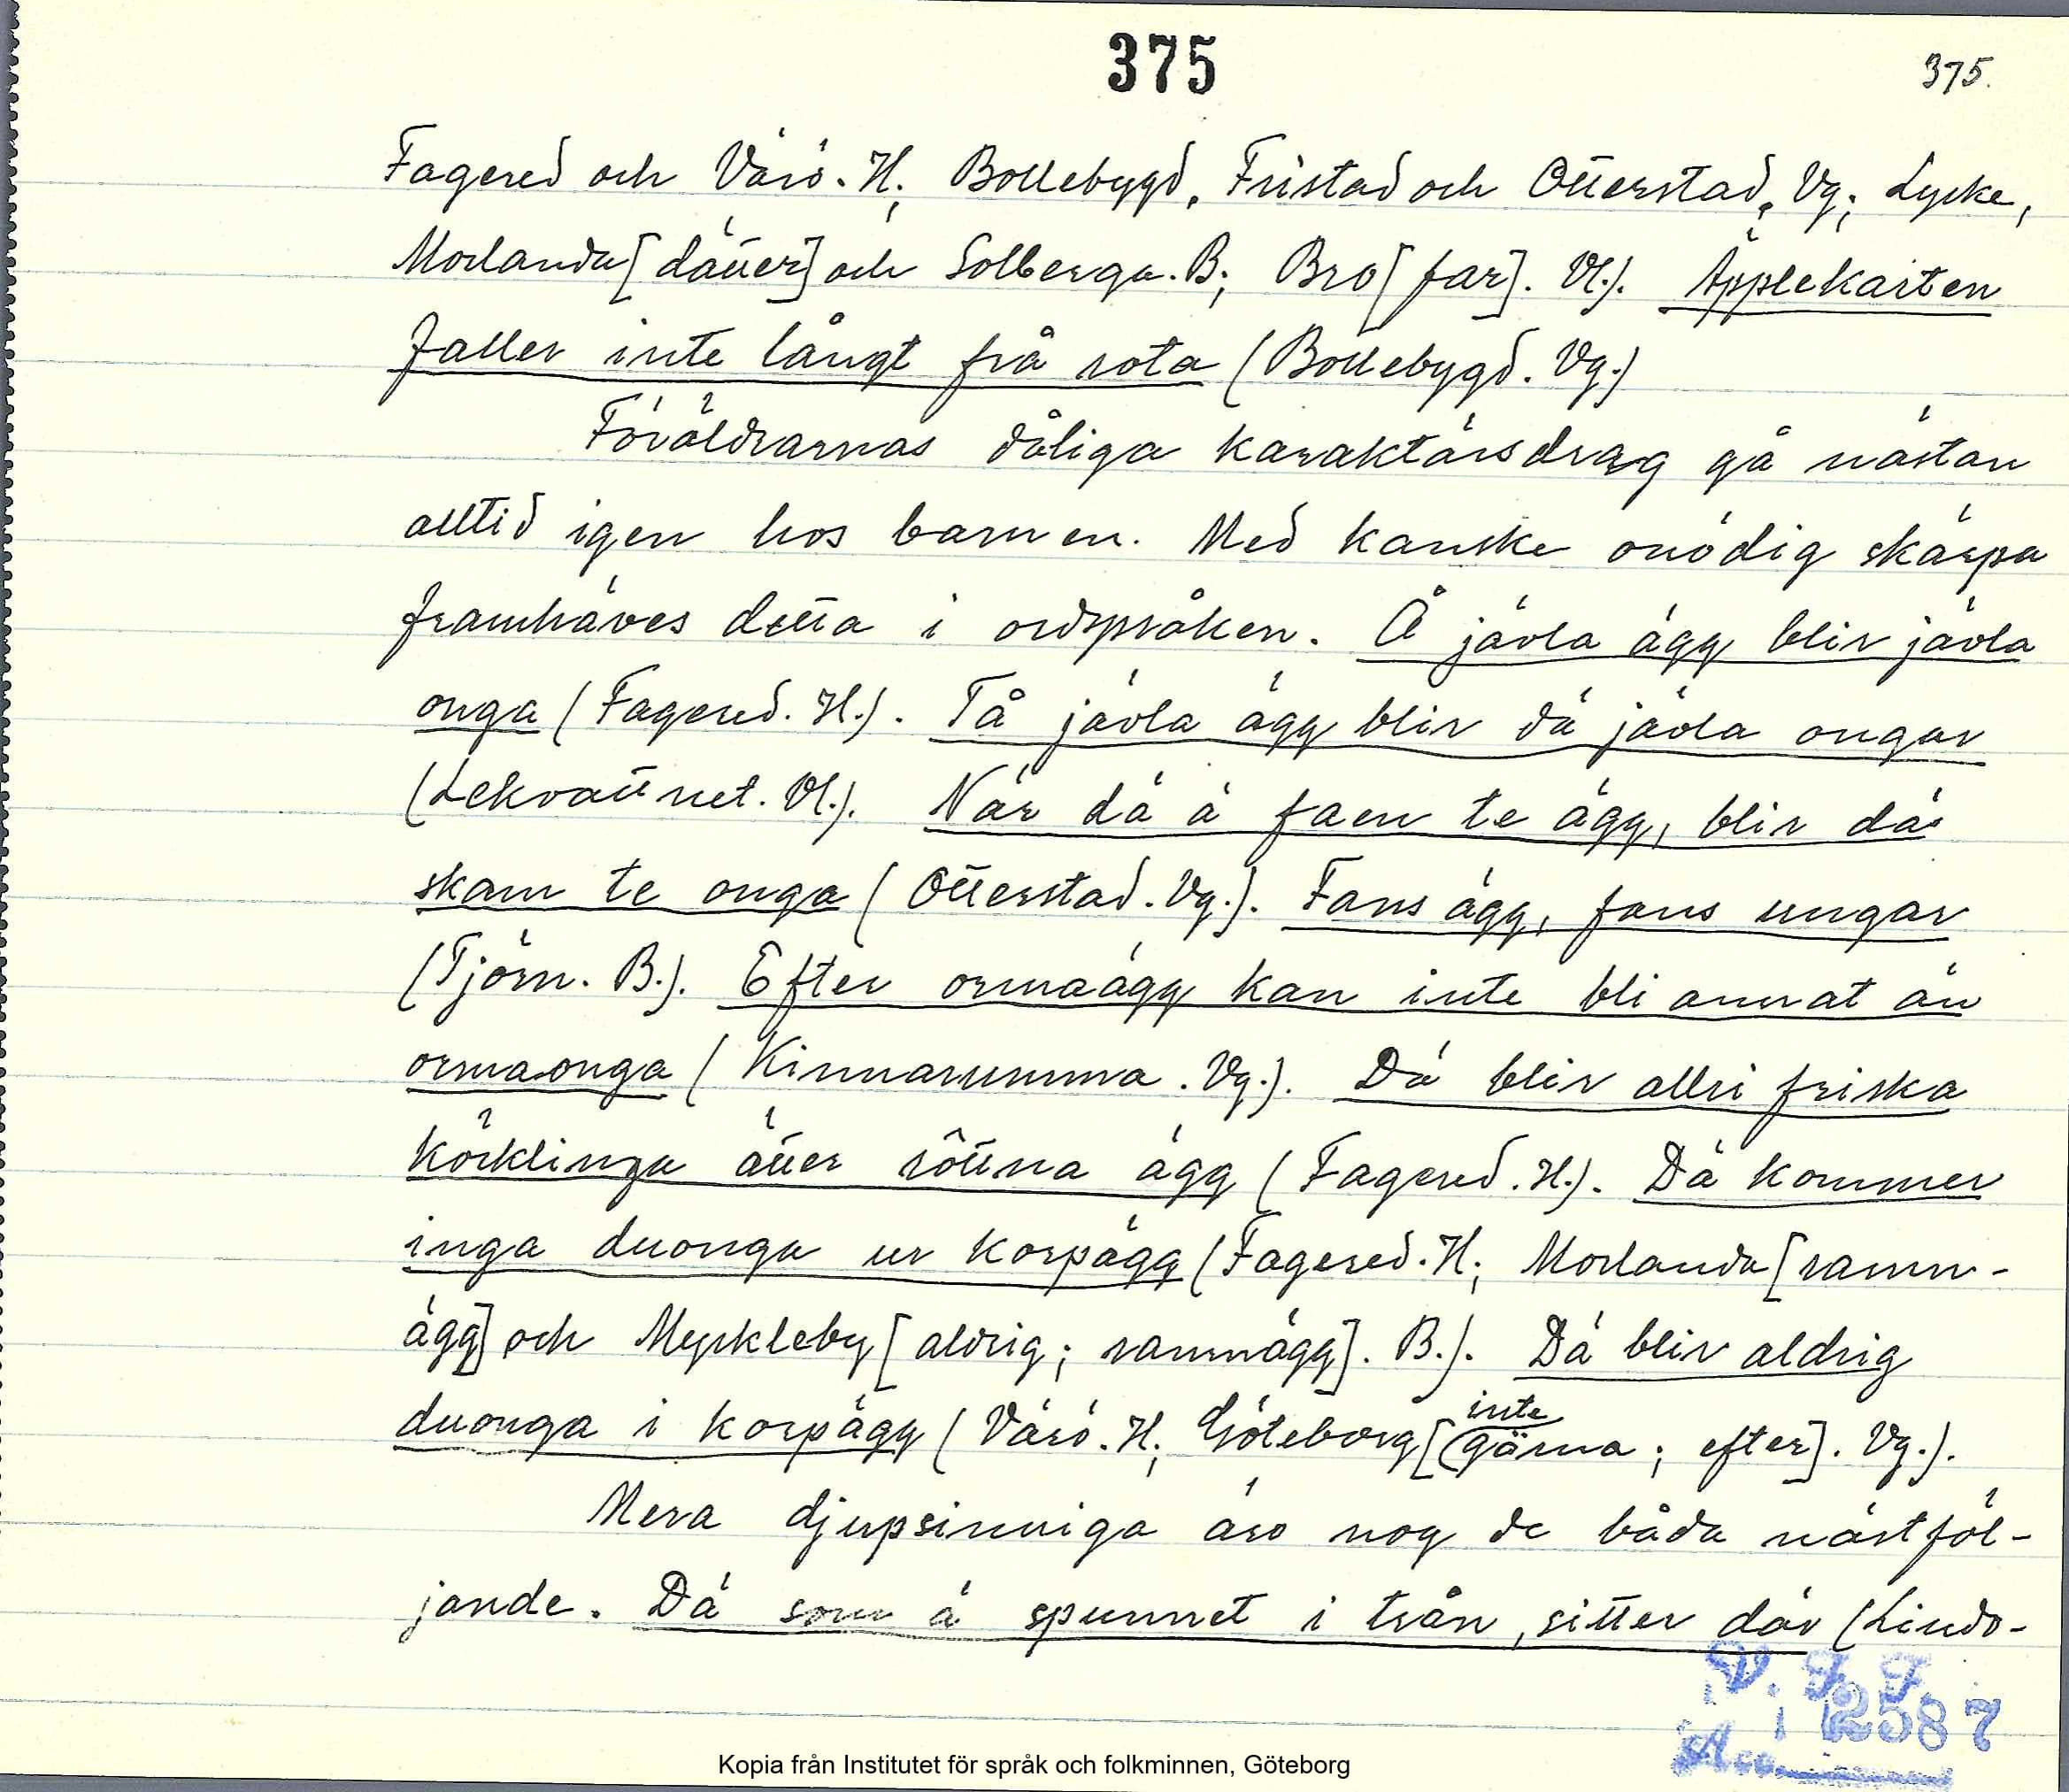 375
375.
Fagered och Värö. H; Bollebygd, Fristad och Otterstad, Vg; Lycke,
Morlanda [dätter] och Solberga. B; Bro [far]. Vl.). Äpplekarten
faller inte långt frå rota (Bollebygd. Vg.)
Föräldrarnas dåliga karaktärsdrag gå nästan
alltid igen hos barnen. Med kanske onödig skärpa
framhäves detta i ordspråken. Å jävla ägg blir jävla
onga (Fagered. H.). Tå jävla ägg blir dä jävla ongar
(Lekvattnet. Vl.). När dä ä faen te ägg, blir dä
skam te onga (Otterstad. Vg.). Fans ägg, fans ungar
(Tjörn. B.). Efter ormaägg kan inte bli annat än
ormaonga (Kinnarumma. Vg.). Dä blir allri friska
körklinga ätter röttna ägg (Fagered. H.). Dä kommer
inga duonga ur korpägg (Fagered. H; Morlanda [ramn-
ägg] och Myckleby [aldrig; ramnägg]. B.). Dä blir aldrig
duonga i korpägg (Värö. H; Göteborg [inte gärna; efter]. Vg.).
Mera djupsinniga äro nog de båda nästföl-
jande. Dä som ä spunnet i trån, sitter där (Lindo-
V. F. F.
12587
Acc.
Kopia från Institutet för språk och folkminnen, Göteborg